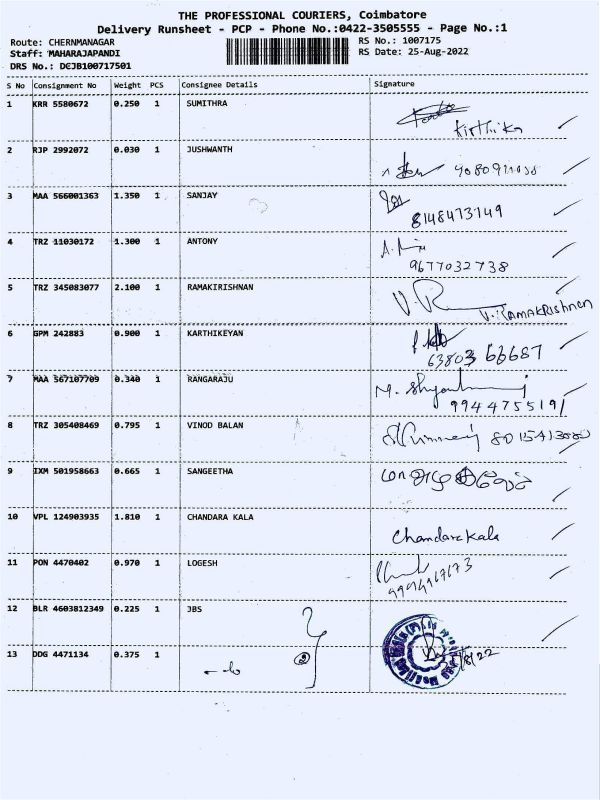 THE PROFESSIONAL COURIERS, Coimbatore
Delivery Runsheet - PCP - Phone No.:0422-3505555 - Page No.:1
Route: CHERNMANAGAR RS No.: 1007175
Staff: MAHARAJAPANDI RS Date: 25-Aug-2022
DRS No.: DEJB100717501
S No Consignment No Weight PCS Consignee Details Signature
1 KRR 5580672 0.250 1 SUMITHRA
Kirthika
2 RJP 2992072 0.030 1 JUSHWANTH
3 MAA 566001363 1.350 1 SANJAY
8148473149
4 TRZ 11030172 1.300 1 ANTONY
9677032738
5 TRZ 345083077 2.100 1 RAMAKIRISHNAN
V. RAMAKRIShnan
6 GPM 242883 0.900 1 KARTHIKEYAN
63803 66687
7 MAA 567107709 0.340 1 RANGARAJU
9944755191
8 TRZ 305408469 0.795 1 VINOD BALAN
9 IXM 501958663 0.665 1 SANGEETHA
10 VPL 124903935 1.810 1 CHANDARA KALA
Chandarakala
11 PON 4470402 0.970 1 LOGESH
12 BLR 4603812349 0.225 1 JBS
13 DDG 4471134 0.375 1
2